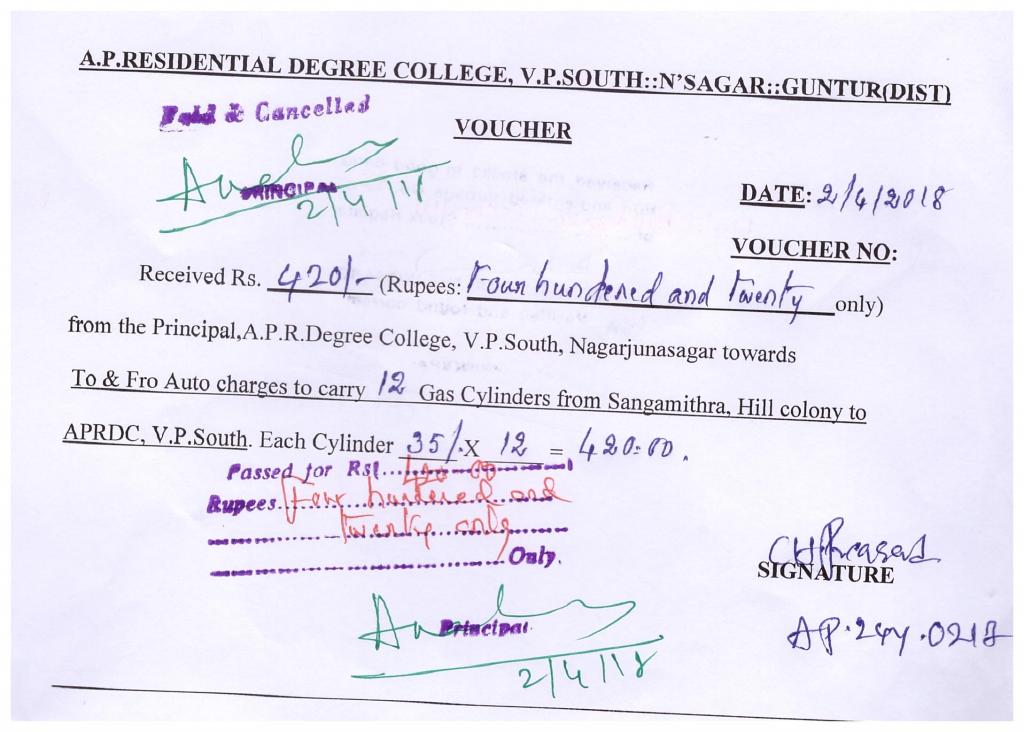 A.P.RESIDENTIAL DEGREE COLLEGE, V.P.SOUTH::N'SAGAR::GUNTUR(DIST)
Paid & Cancelled
VOUCHER
PRINCIPAL
2/4/18
DATE: 2/4/2018
VOUCHER NO:
Received Rs. 420/- (Rupees: Four hundered and Twenty only)
from the Principal,A.P.R.Degree College, V.P.South, Nagarjunasagar towards
To & Fro Auto charges to carry 12 Gas Cylinders from Sangamithra, Hill colony to
APRDC, V.P.South. Each Cylinder 35/. X 12 = 420.00.
Passed for Rs. 420-00
Rupees Four hundered and
twenty only
Only.
CH Prasad
SIGNATURE
Principal
2/4/18